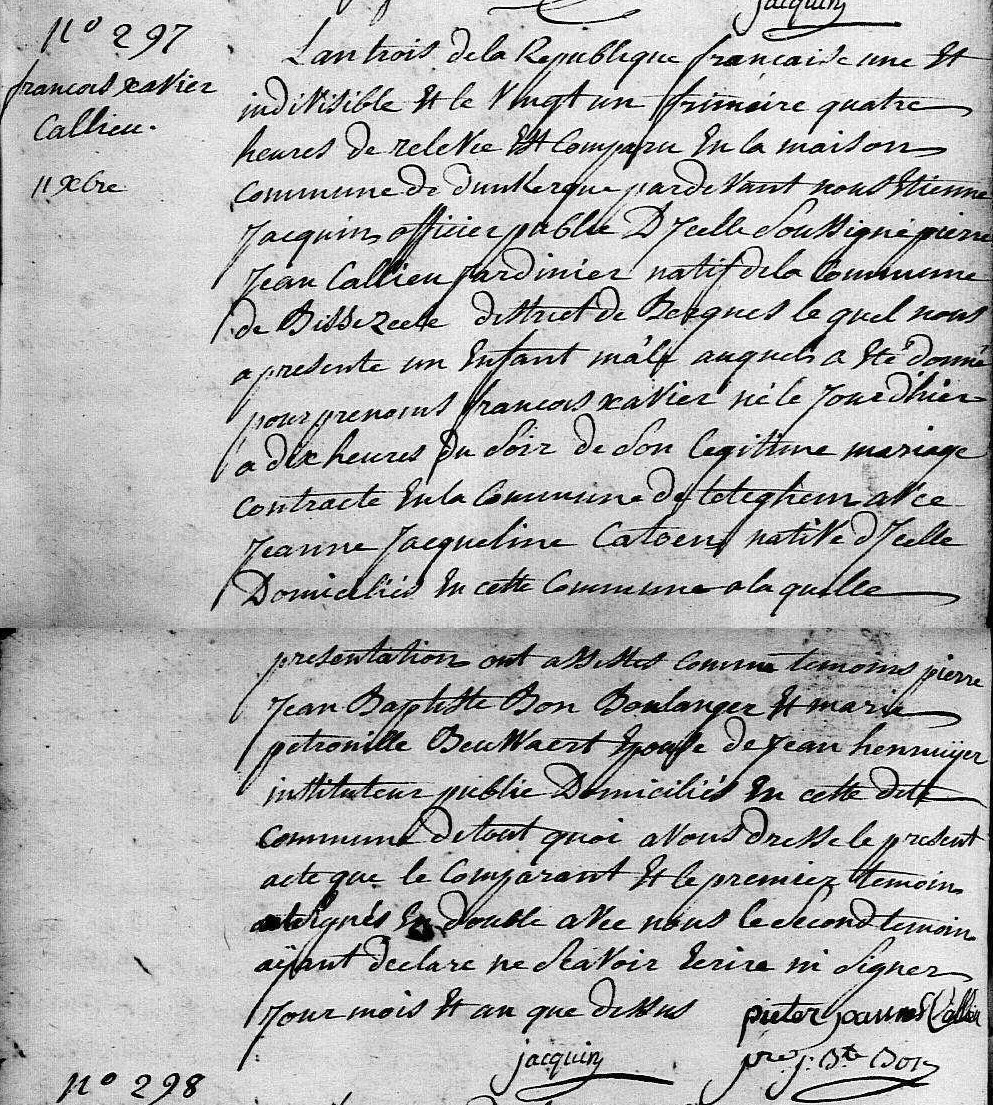 jacquin
n° 297
francois xavier
Callieu.
11 xbre
Lan trois de la Republique francaise une Et
indivisible Et le Vingt un frimaire quatre
heures de relevée Est Comparu En la maison
commune de dunkerque pardevant nous Etienne
Jacquin officier public D'Jcelle Soussigné pierre
Jean Callieu Jardinier natif de la Commune
de Bissezeele district de Bergues lequel nous
a presente un Enfant mâle auquel a Eté donné
pour prenoms francois xavier né le Jour d'hier
a dix heures du Soir de Son legitime mariage
contracte En la Commune de teteghem avec
Jeanne Jacqueline Catoen native d'Jcelle
Domiciliés En cette Commune a la quelle
presentation ont assistes comme temoins pierre
Jean Baptiste Bon Boulanger Et marie
petronille Beuwaert Epouse de Jean hennuyer
instituteur public Domiciliés En cette dite
commune de tout quoi avons dresse le present
acte que le Comparant Et le premier temoin
signés En double avec nous le Second temoin
aÿant declare ne Scavoir Ecrire ni Signer
Jour mois Et an que dessus pieter joannes Callieu
jacquin prre j. Bte Bon
n° 298